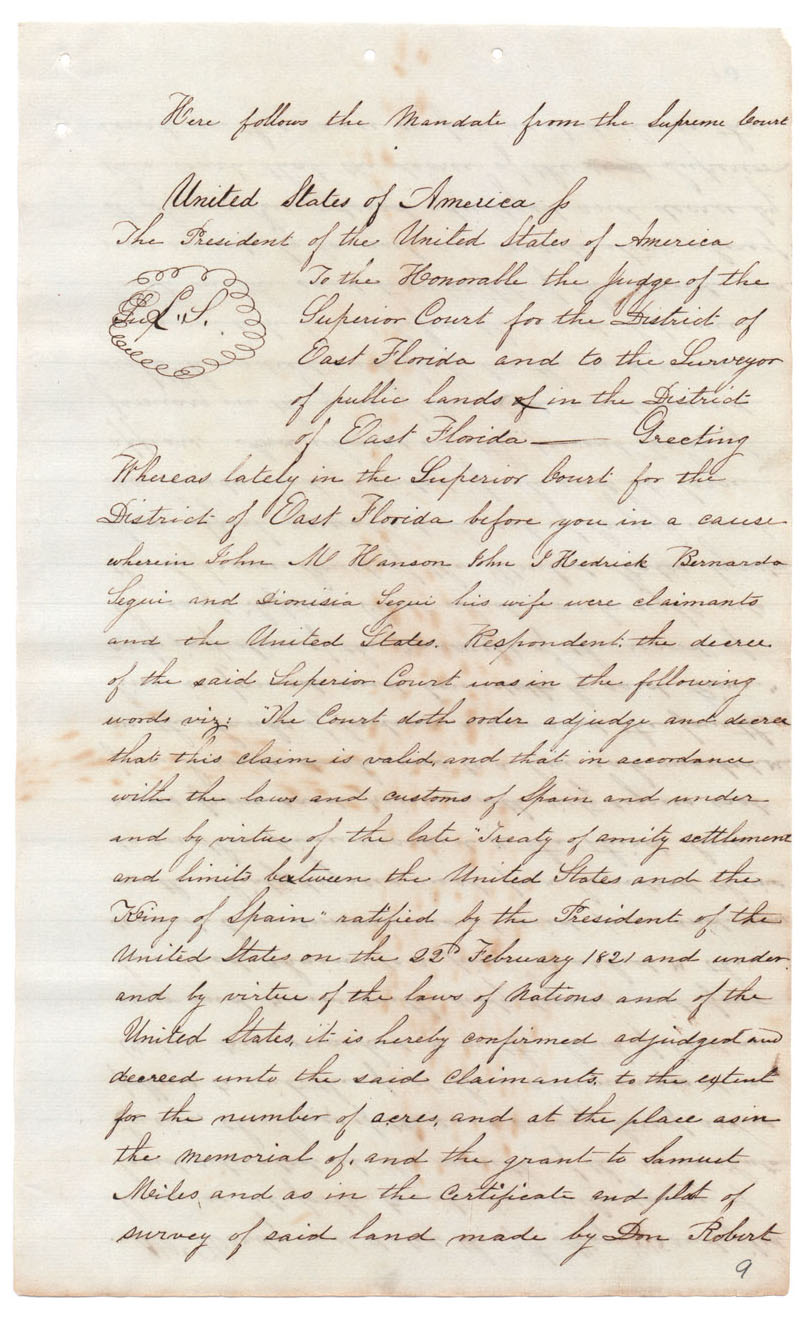 Here follows the Mandate from the Supreme Court
United States of America ss
The President of the United States of America
To the Honorable the Judge of the
L. S.
Superior Court for the District of
East Florida and to the Surveyor
of public lands in the District
of East Florida — Greeting
Whereas lately in the Superior Court for the
District of East Florida before you in a cause
wherein John M Hanson John I Hedrick Bernardo
Segui and Dionisia Segui his wife were claimants
and the United States. Respondent. the decree
of the said Superior Court was in the following
words viz: "The Court doth order adjudge and decree
that this claim is valid, and that in accordance
with the laws and customs of Spain and under
and by virtue of the late "Treaty of amity settlement
and limits between the United States and the
King of Spain" ratified by the President of the
United States on the 22d February 1821 and under
and by virtue of the laws of Nations and of the
United States, it is hereby confirmed adjudged and
decreed unto the said Claimants, to the extent
for the number of acres, and at the place as in
the memorial of, and the grant to Samuel
Miles, and as in the Certificate and plat of
survey of said land made by Don Robert
9